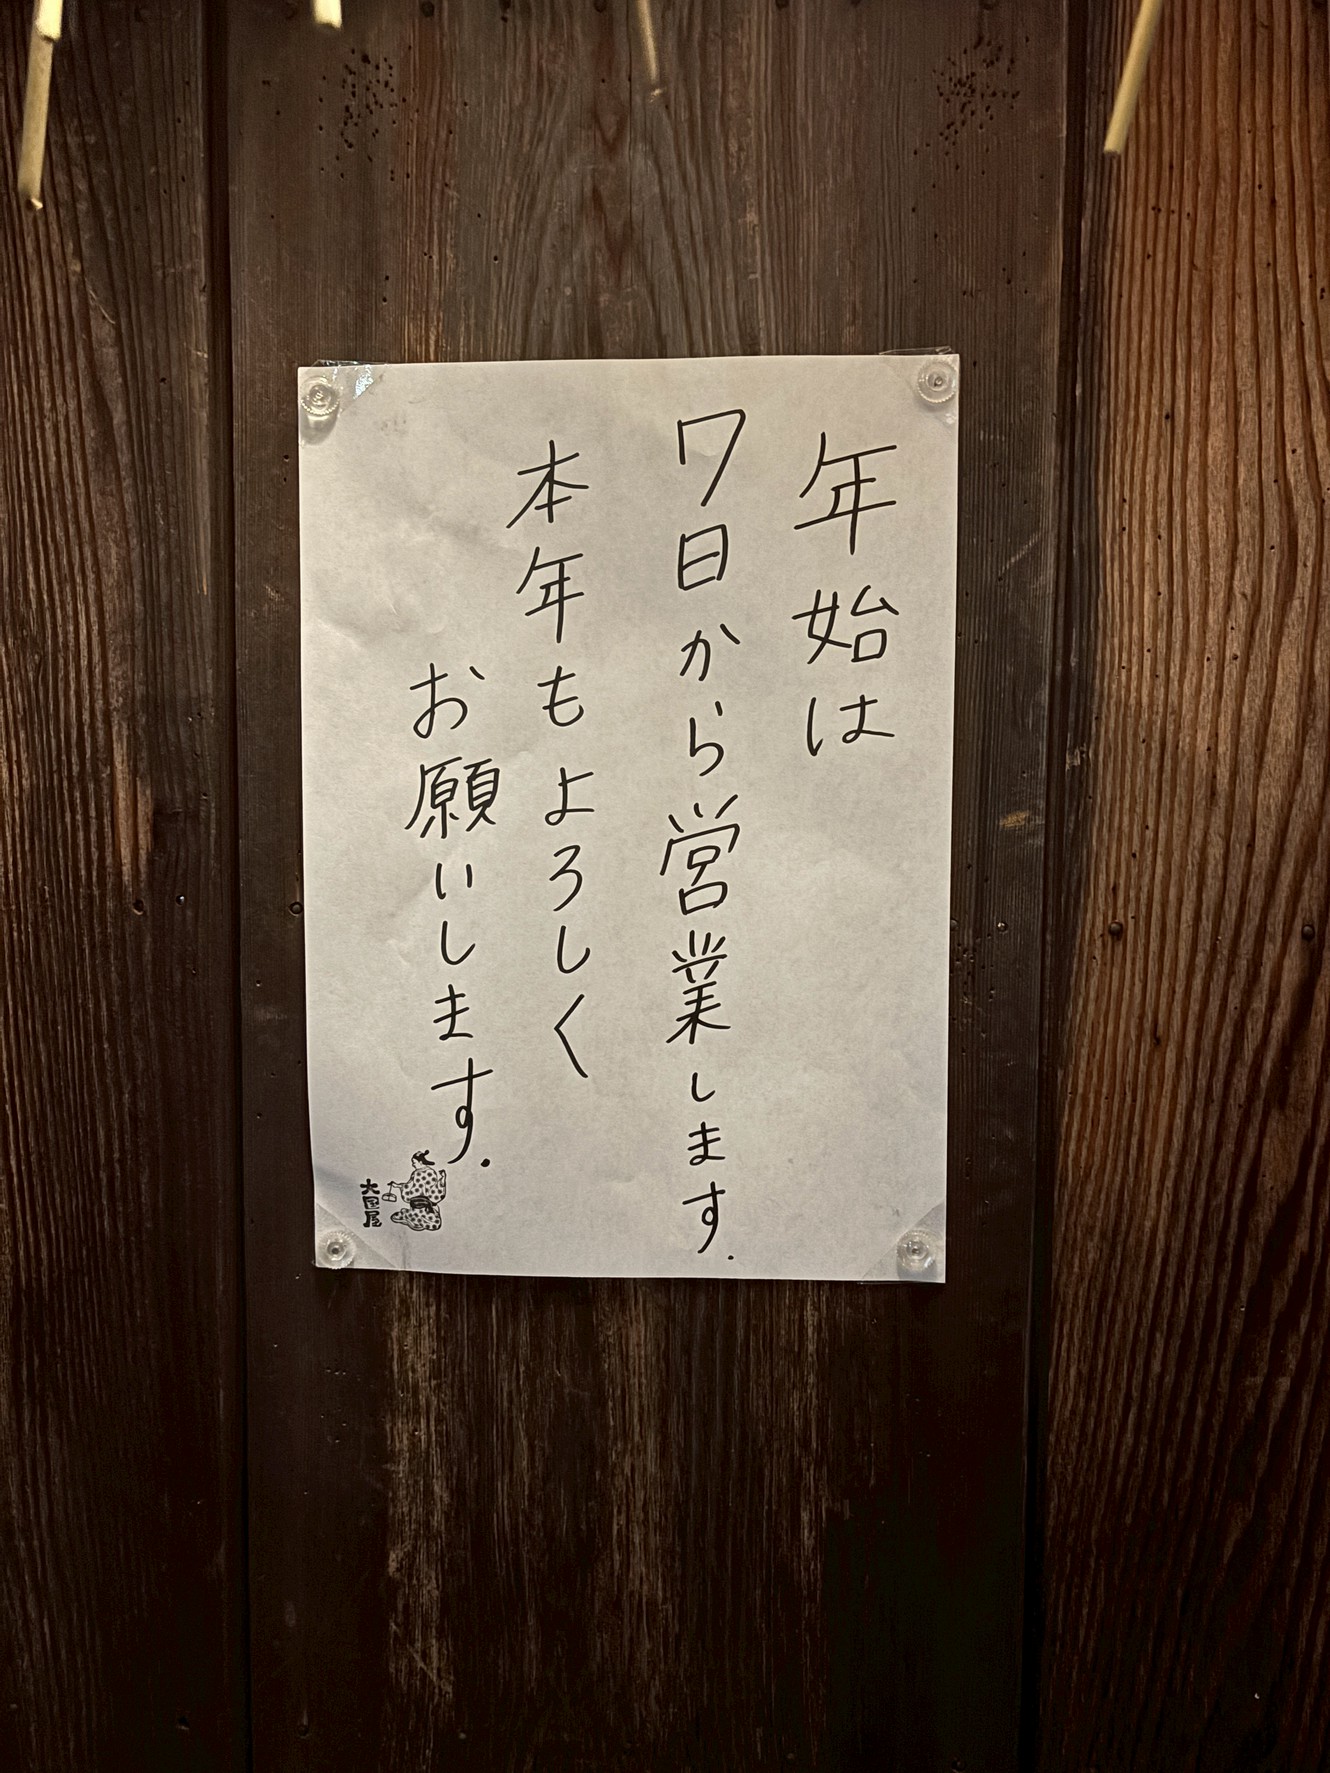 年始は
7日から営業します.
本年もよろしく
お願いします.
大国屋